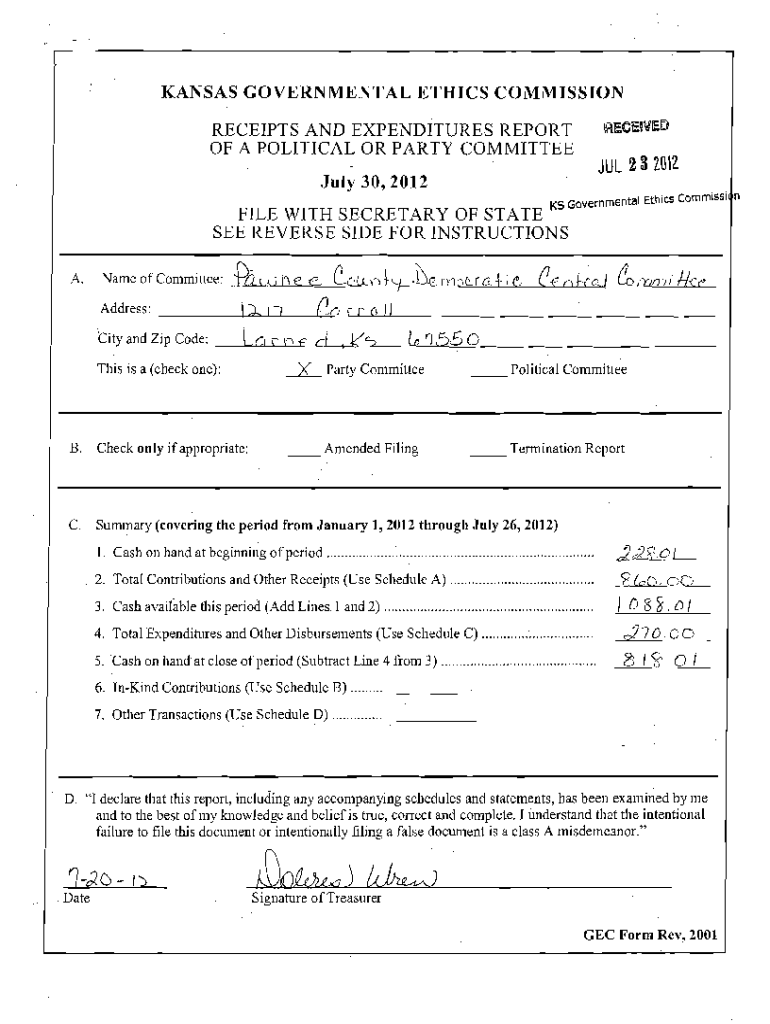 KANSAS GOVERNMENTAL ETHICS COMMISSION
RECEIPTS AND EXPENDITURES REPORT
OF A POLITICAL OR PARTY COMMITTEE
RECEIVED
JUL 23 2012
July 30, 2012
KS Governmental Ethics Commission
FILE WITH SECRETARY OF STATE
SEE REVERSE SIDE FOR INSTRUCTIONS
A. Name of Committee: Pawnee County Democratic Central Committee
Address: 1217 Carroll
City and Zip Code: Larned, KS 67550
This is a (check one): X Party Committee ____ Political Committee
B. Check only if appropriate: ____ Amended Filing ____ Termination Report
C. Summary (covering the period from January 1, 2012 through July 26, 2012)
1. Cash on hand at beginning of period ........ 228.01
2. Total Contributions and Other Receipts (Use Schedule A) ........ 860.00
3. Cash available this period (Add Lines 1 and 2) ........ 1088.01
4. Total Expenditures and Other Disbursements (Use Schedule C) ........ 270.00
5. Cash on hand at close of period (Subtract Line 4 from 3) ........ 818 01
6. In-Kind Contributions (Use Schedule B) .........
7. Other Transactions (Use Schedule D) .............
D. “I declare that this report, including any accompanying schedules and statements, has been examined by me
and to the best of my knowledge and belief is true, correct and complete. I understand that the intentional
failure to file this document or intentionally filing a false document is a class A misdemeanor.”
7-20-12 Dolores Wren
Date Signature of Treasurer
GEC Form Rev, 2001